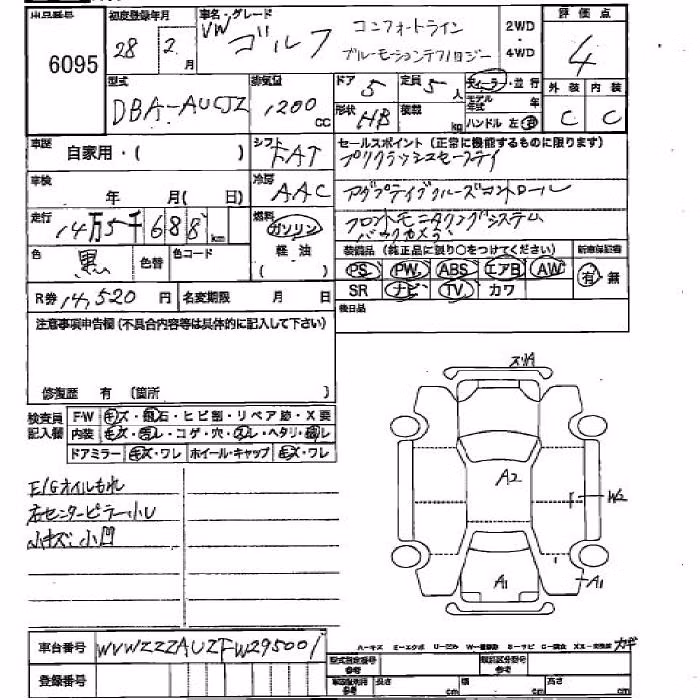 出品番号 初度登録年月 車名・グレード 評価点
6095 28年 2月 VW ゴルフ コンフォートライン 2WD 4
ブルーモーションテクノロジー 4WD
型式 排気量 ドア 定員 ディーラー・並行 外装 内装
DBA-AUCJZ 1200 cc 5 5人 モデル年式 年 C C
形状 HB 積載 kg ハンドル 左 右
車歴 シフト セールスポイント (正常に機能するものに限ります)
自家用・( ) FAT プリクラッシュセーフティ
車検 冷房
年 月( 日) AAC アダプティブクルーズコントロール
走行 燃料 フロントモニタリングシステム
14万5千688 km ガソリン バックカメラ
色 色替 色コード 軽油 装備品 (純正品に限り○をつけてください) 新車保証書
黒 ( ) PS PW ABS エアB AW 有・無
R券 14,520円 名変期限 月 日 SR ナビ TV カワ
注意事項申告欄 (不具合内容等は具体的に記入して下さい) 後日品
修復歴 有 (箇所 )
検査員 F/W キズ・飛石・ヒビ割・リペア跡・X要
記入欄 内装 キズ・汚レ・コゲ・穴・スレ・ヘタリ・
ドアミラー キズ・ワレ ホイール・キャップ キズ・ワレ
スリA
A2
W2
A1
A1
E/Gオイルもれ
右センターピラー小
小キズ・小凹
車台番号 WVWZZZAUZFW295001
登録番号
A-キズ E-エクボ U-凹ミ
型式指定番号 参考 類別区分番号 参考
参考 長さ cm 幅 cm 高さ cm